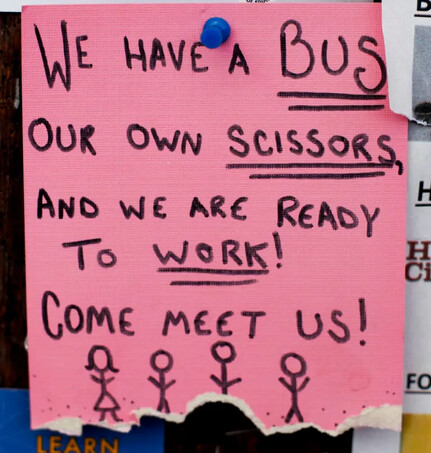 WE HAVE A BUS
OUR OWN SCISSORS,
AND WE ARE READY
TO WORK!
COME MEET US!
LEARN
FO